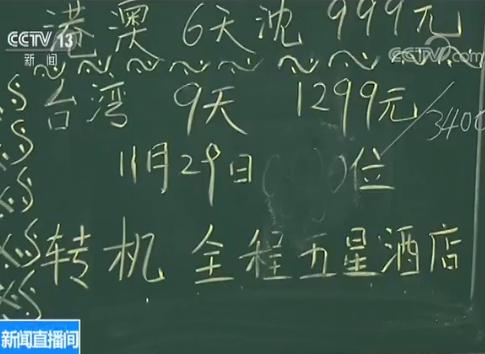 CCTV 13
新闻
港澳 6天沈 999元
CCTV.com
台湾 9天 1299元/3400
11月29日( )位
转机 全程五星酒店
新闻直播间